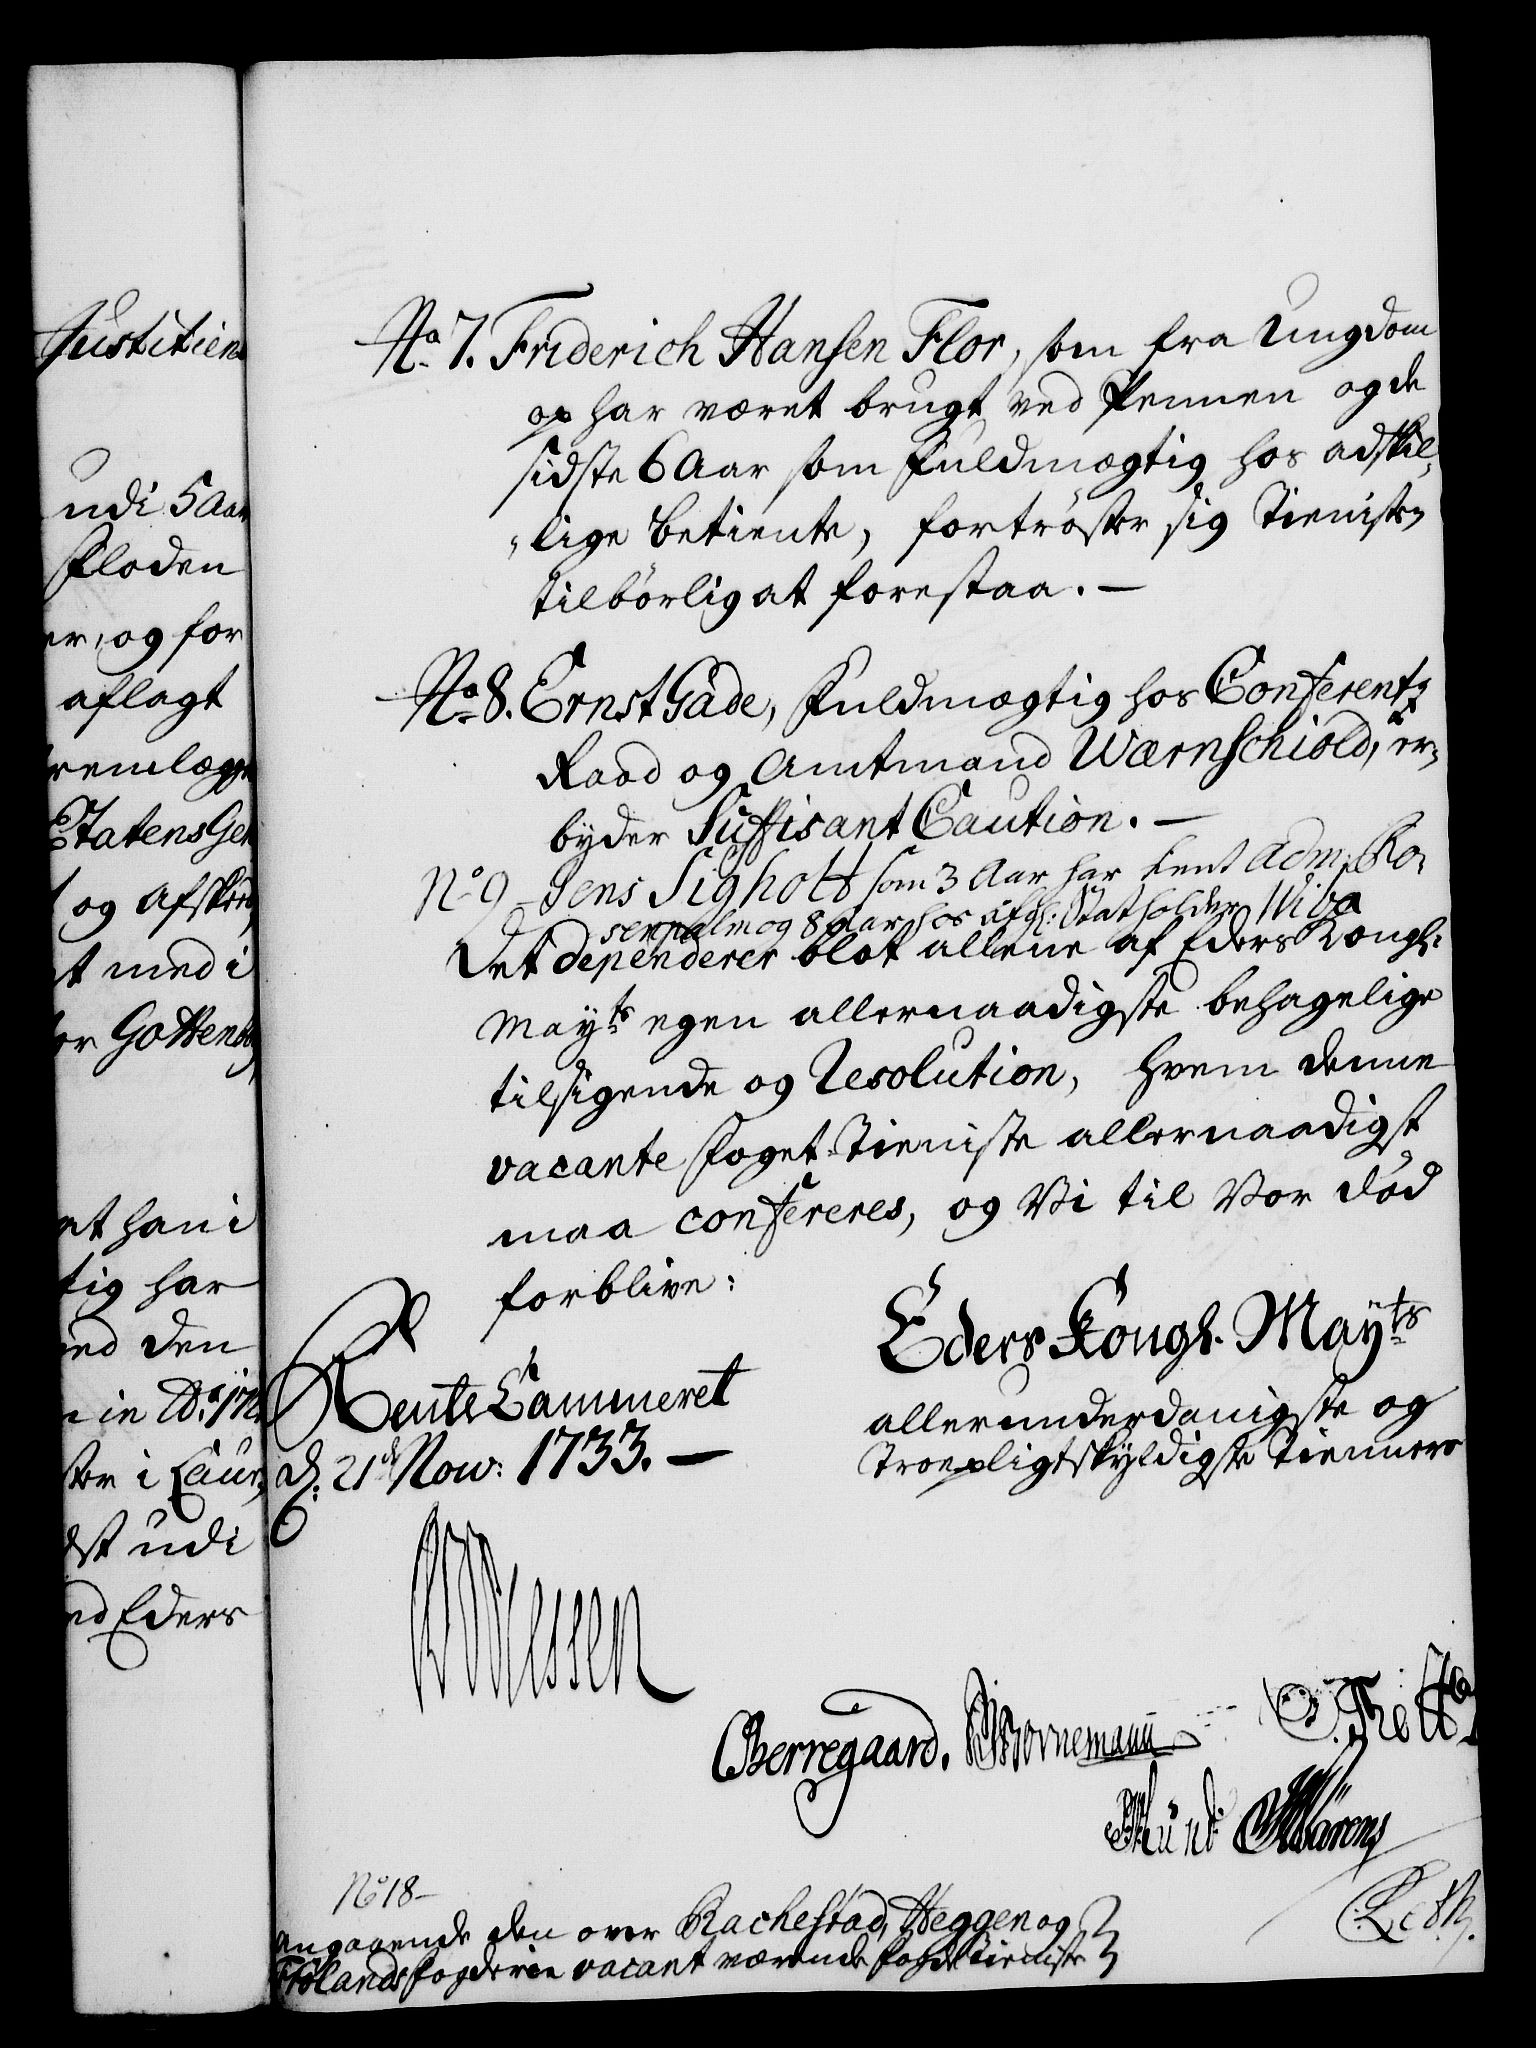 Justitien
udi 5 Aar
Floden
er, og for
aflagt
remlægge
Statens Ge
og Afskee
t med i
or Gottenb
et han i
tig har
ed den
ster i Laur
dst udi
ed Eders
No 7. Friderich Hansen Flor, som fra Ungdom
op har været brugt ved Pennen og de
sidste 6 Aar som Fuldmægtig hos adskil„
„lige betiente, fortröster sig Tienisten
tilbörlig at forestaa. —
No 8. Ernst Gade, Fuldmægtig hos Conferentz
Raad og Amtmand Wærnschiold, er„
byder Suffisant Caution. —
No 9 Jens Sigholt som 3 Aar har tient Adm: Ro„
senpalm og 8 Aar hos Statholder Wibe
Det dependerer blot allene af Eders Kongl:
Mayts egen allernaadigste behagelige
tilsigende og Resolution, hvem denne
vacante Foget-Tieniste allernaadigst
maa confereres, og Vi til Vor död
forblive:
Eders Kongl. Mayts
allerunderdanigste og
Troepligtskyldigste Tiennere
Rente Cammeret
d. 21de Nov: 1733. —
Berregaard. Bornemann O. Thott
No 18 —
angaaende den over Rachestad, Heggen og
Frölands fogderie vacant værende foged tieniste